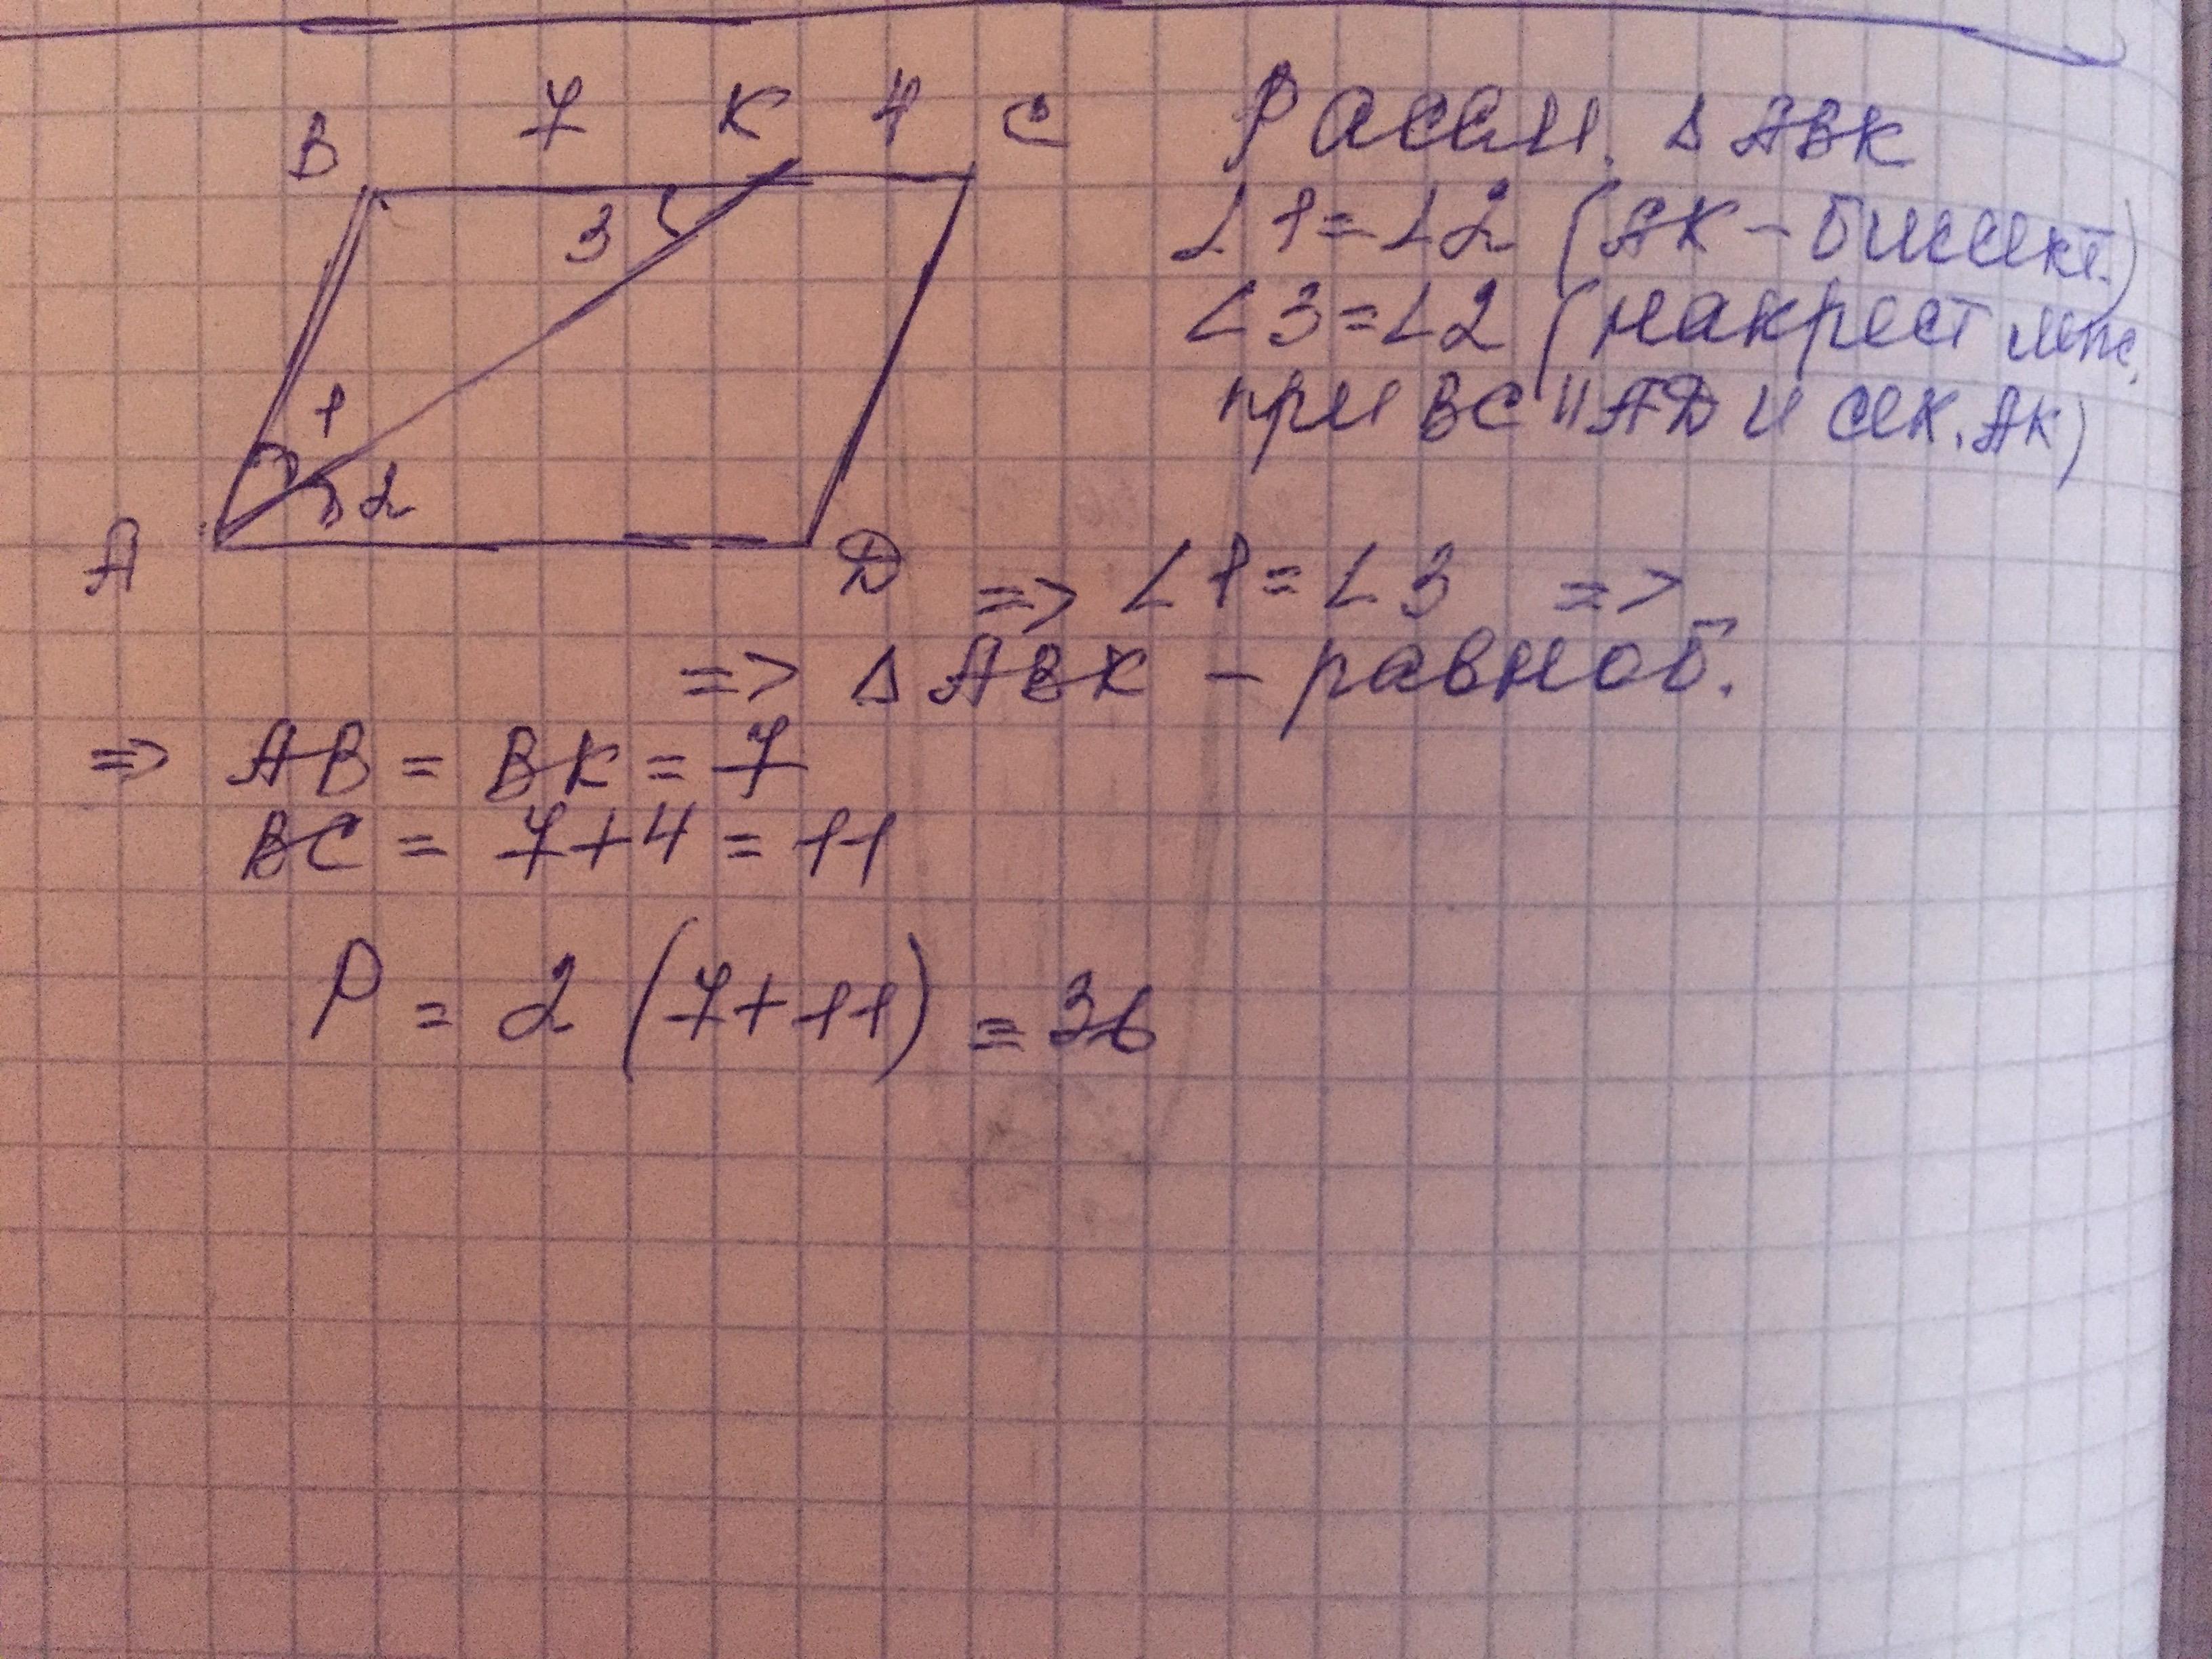 B 7 K 4 C
3
1
2
A D
Рассм. Δ ABK
∠1=∠2 (AK – биссект.)
∠3=∠2 (накрест леж.
при BC || AD и сек. AK)
=> ∠1=∠3 =>
=> Δ ABK – равноб.
=> AB = BK = 7
BC = 7+4 = 11
P = 2 (7+11) = 36